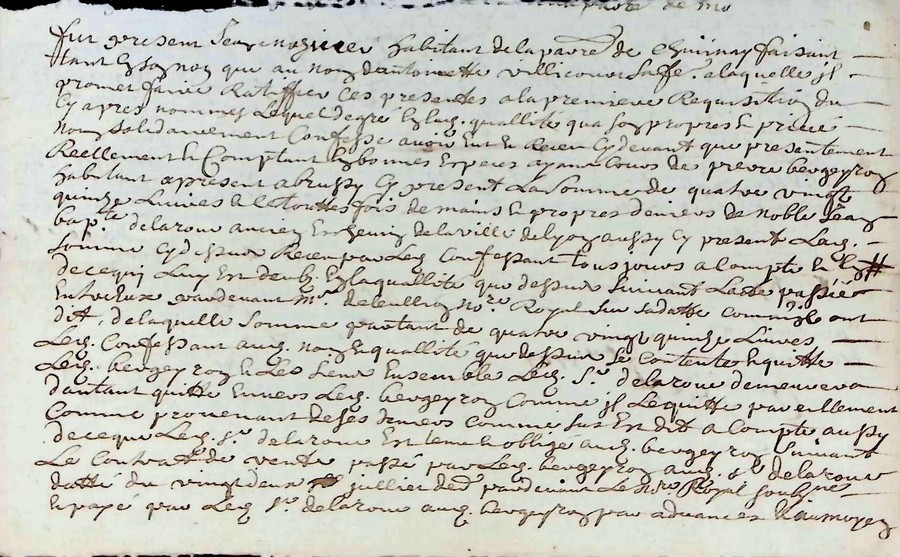 fut present Jean habitant de la parre de faisant
tant en son nom que au nom d'antoinette villicour sa ffe. a laquelle jl
promet faire Ratiffier ces presentes a la premiere Requisition du
Cy apres nommes Lequel de gre En lad. quallitte qua son propre & privé
nom solidairement Confesse avoir Eut & Receu Cy devant que presentement
Reellement & Comptant En bonnes Especes ayant Cours de pierre bergeyron
habitant apresent a Cy present La Somme de quatre vingt
quinze Livres & le touttes fois de mains & propres deniers de Noble Jean
bapte. delaroue ancien Eschevin de la ville de Lyon aussy Cy present Lad.
Somme Cy dessus Receu par Led. Confessant tousjours a Compte & En #
de ce quj Luy Est deub En la quallitte que dessus suivant Lacte passé
Entre Eux pardevant Mre. nore. Royal sur sa datte comme jls ont
dit, de laquelle Somme partant de quatre vingt quinze Livres
Led. Confessant aud. nom & quallité que dessus se Contente & quitte
Led. bergeyron & Les siens Ensemble Led. Sr. delaroue demeurera
dautant quitte Envers Led. bergeyron Comme jl Le quitte pareillement
Comme provenant de ses deniers comme sus Est dit a Compte aussy
de ce que Led. Sr. delaroue Est tenu & oblige aud. bergeyron suivant
Le Contratt de vente passé par Led. bergeyron aud. Sr delaroue
datté du vingt deux juillier der. pardevant Le nore. Royal soubsnes.
Et payé par Led. Sr. delaroue aud. bergeyron par advances & au moyen